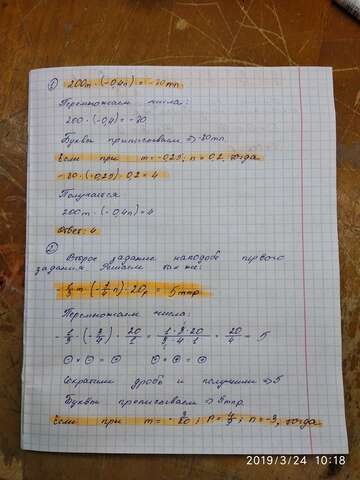 ① 200m · (-0,4n) = -80mn
Перемножаем числа:
200 · (-0,4) = -80
Буквы приписываем ⇒ -80mn
Если при m = -0,25; n = 0,2, тогда
-80 · (-0,25) · 0,2 = 4
Получается
200m · (-0,4n) = 4
Ответ: 4
② Второе задание наподобе первого
задания. Решаем так же:
· 20p = 5mnp
Перемножаем числа:
= 5
⊖ × ⊖ = ⊕ ⊕ × ⊕ = ⊕
Сокращаем дробь и получим ⇒ 5
Буквы приписываем ⇒ 5mnp
Если при m = ; p = ; n = -3, тогда
2019/3/24 10:18